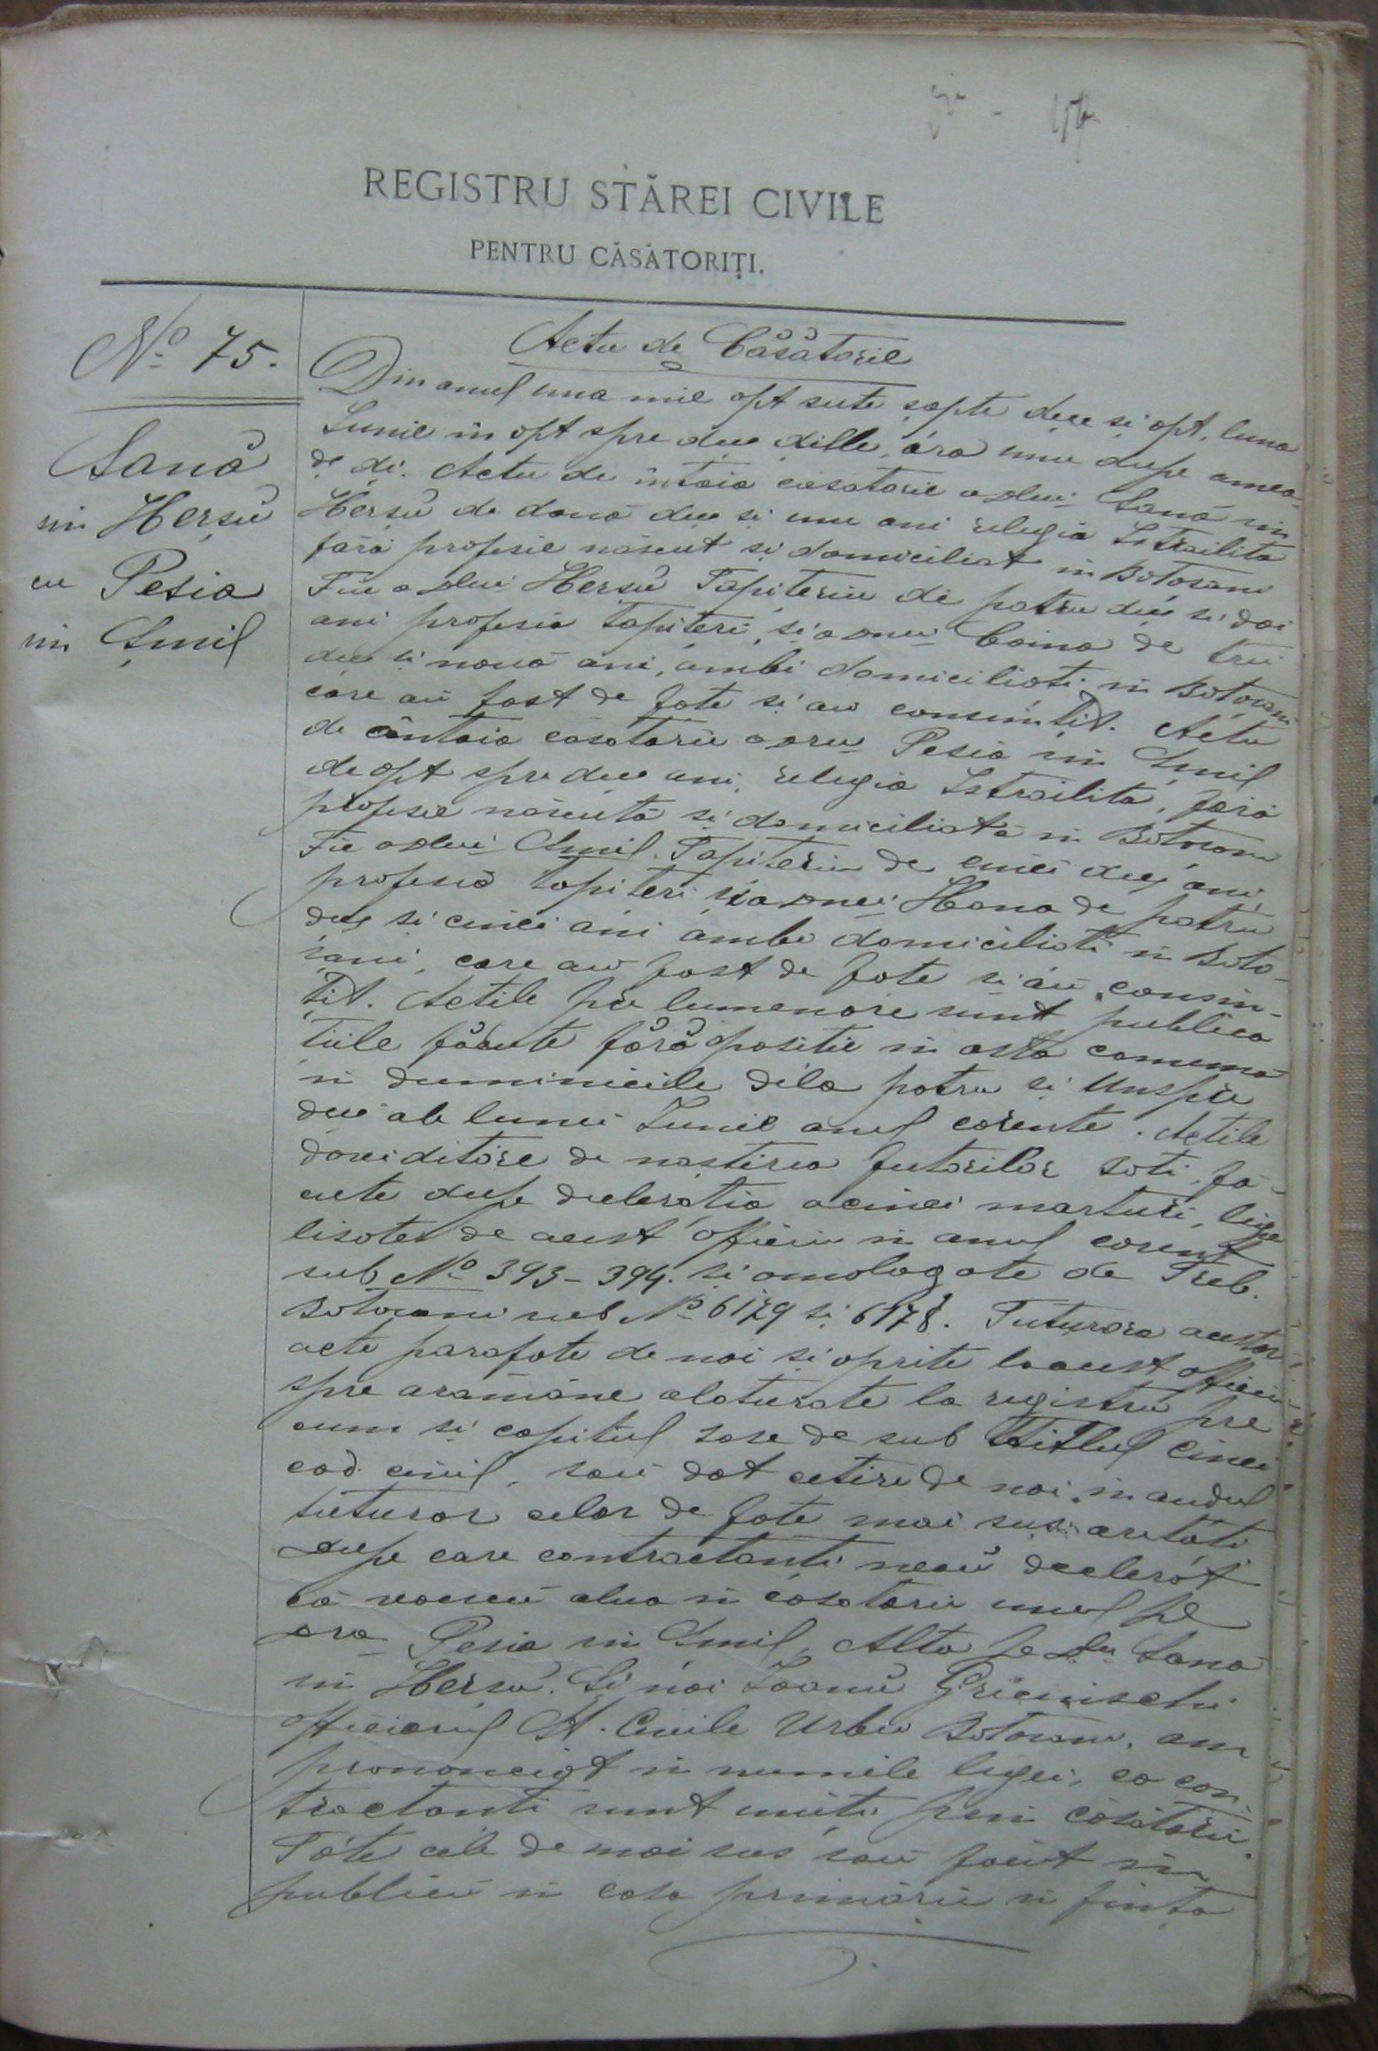 REGISTRU STĂREI CIVILE
PENTRU CĂSĂTORIȚI.
No 75.
Sană
sin Herșŭ
cu Pesia
sin Șmil
Actu de Căsătorie
Din anul una mie opt sute șapte dece și opt, luna
Iunie in opt spre dece dille, óra unu dupe amea-
de di. Actu de intaia casatorie a dlui Sană sin
Hersŭ de două dece si unu ani relegia Istrailita
fără profesie născut si domiciliat in Botosani
Fiu a dlui Hersŭ Tapiteriu de patru dece si doi
ani profesia tapiteri, si a dnei Coina de trei
dece si nouă ani, ambi domiciliati in Botosani
care au fost de fate si au consimtit. Actu
de ântaia căsatorie a dre Pesia sin Șmil
de opt spre dece ani, relegia Istrailita, fără
profesie născută si domiciliată in Botosani
Fie a dlui Șmil Tapiteriu de cinci dece ani,
profesia tapiteri si a dnei Hana de patru
dece si cinci ani ambi domiciliati in Boto-
sani, care au fost de fate si au consim-
tit. Actile pre lumenare sunt publica
tiile făcute fără positie in asta comună
in duminicile dila patru si Unspre
dece ale lunei Iunie anul corente. Actile
doveditóre de nasterea futorilor soti, fă-
cute dupe decleratia a cinci marturi, lega
lisate de acest officiu in anul corent
sub No 393-394. si omologate de Treb.
Botosani sub No 6179 si 6178. Tuturora acestor
acte parafate de noi si oprite la acest officiu
spre a rămâne alaturate la registru pre
cum si capitul sase de sub Titlul cinci
cod. civil, sau dat cetire de noi, in audul
tuturor celor de fate mai susŭ aretati
dupe care contractanti neaŭ declerat
că voescŭ alua in căsatorie unul pe
dra Pesia sin Șmil, Alta pe Dlu Sana
sin Hersŭ. Si noi Ioanŭ
officierul St. Civile Urbei Botosani, am
prononciat in numile legei, ca con-
tractanti sunt uniti prin căsatorie.
Tóte cele de mai sus sau facut in
publicŭ in casa primărie in fiinta